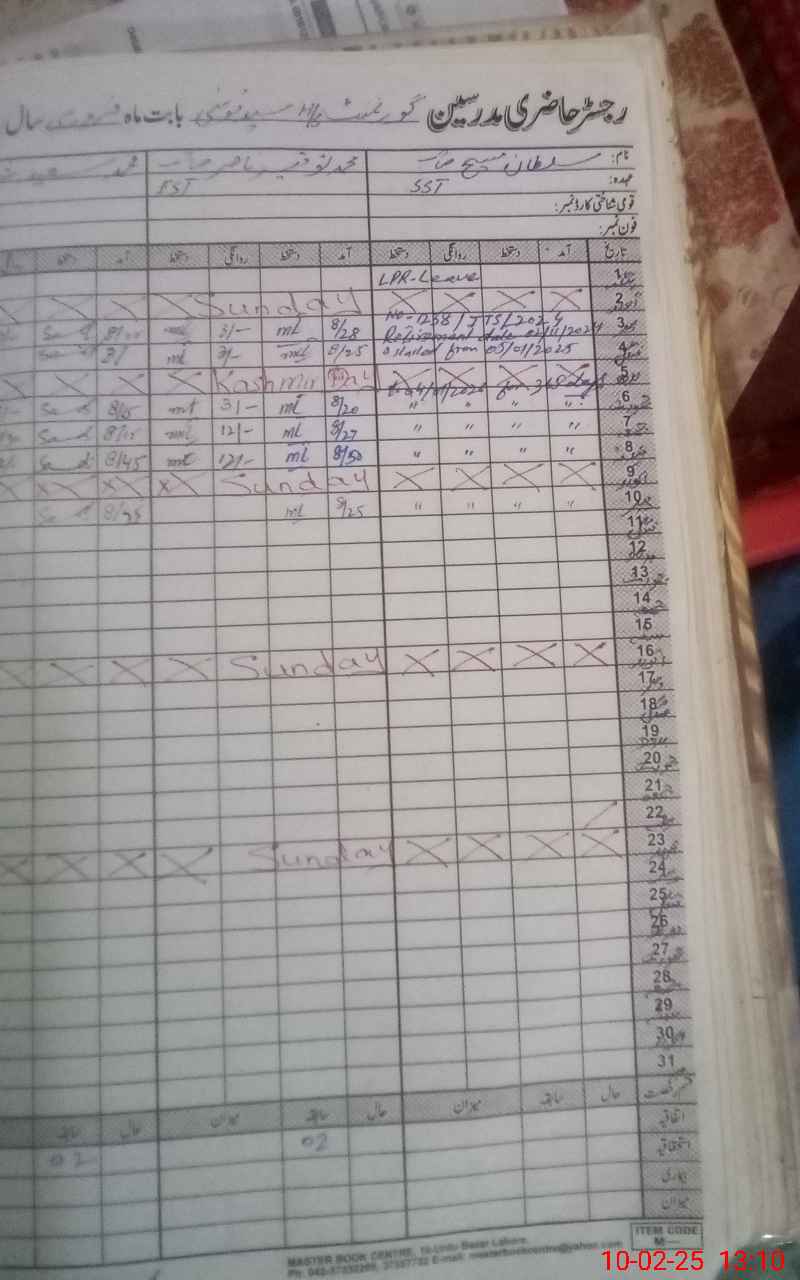 رجسٹر حاضری مدرسین گورنمنٹ بابت ماہ فروری سال
نام: سلطان مسیح صاحب محمد توقیر ناصر صاحب محمد سعید
عہدہ: SST EST
قومی شناختی کارڈ نمبر:
فون نمبر:
تاریخ آمد دستخط روانگی دستخط آمد دستخط روانگی دستخط آمد دستخط
1 LPR-Leave
2 X X X X Sunday X X X X
3 No-1268/ /2024 8/28 ml 3/- ml
Retirement date /11/2024
4 started from 05/01/2025 8/25 ml 3/- ml
5 X X X X Kashmir Day X X X X
to 04/01/2026 for 365 days
6 " " " " 8/20 ml 3/- ml 8/15
7 " " " " 8/27 ml 12/- ml
8 " " " " 8/50 ml 12/- ml 8/45
9 X X X X Sunday X X X X
10 " " " " 8/25 ml 8/25
11
12
13
14
15
16 X X X X Sunday X X X X
17
18
19
20
21
22
23 X X X X Sunday X X X X
24
25
26
27
28
29
30
31
قسم رخصت حال سابقہ میزان حال سابقہ میزان حال سابقہ
اتفاقیہ
استحقاقیہ 02 02
بیماری
میزان
ITEM CODE
M—
MASTER BOOK CENTRE, 10-Urdu Bazar Lahore.
10-02-25 13:10